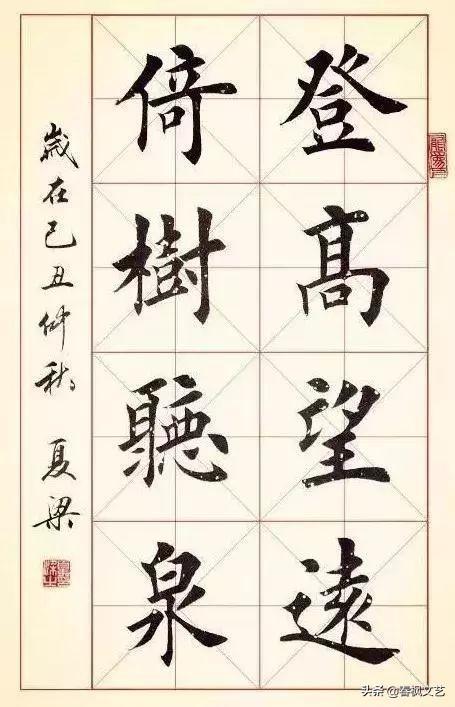 登高望遠
倚樹聽泉
歲在己丑仲秋 夏梁
头条@春枫文艺